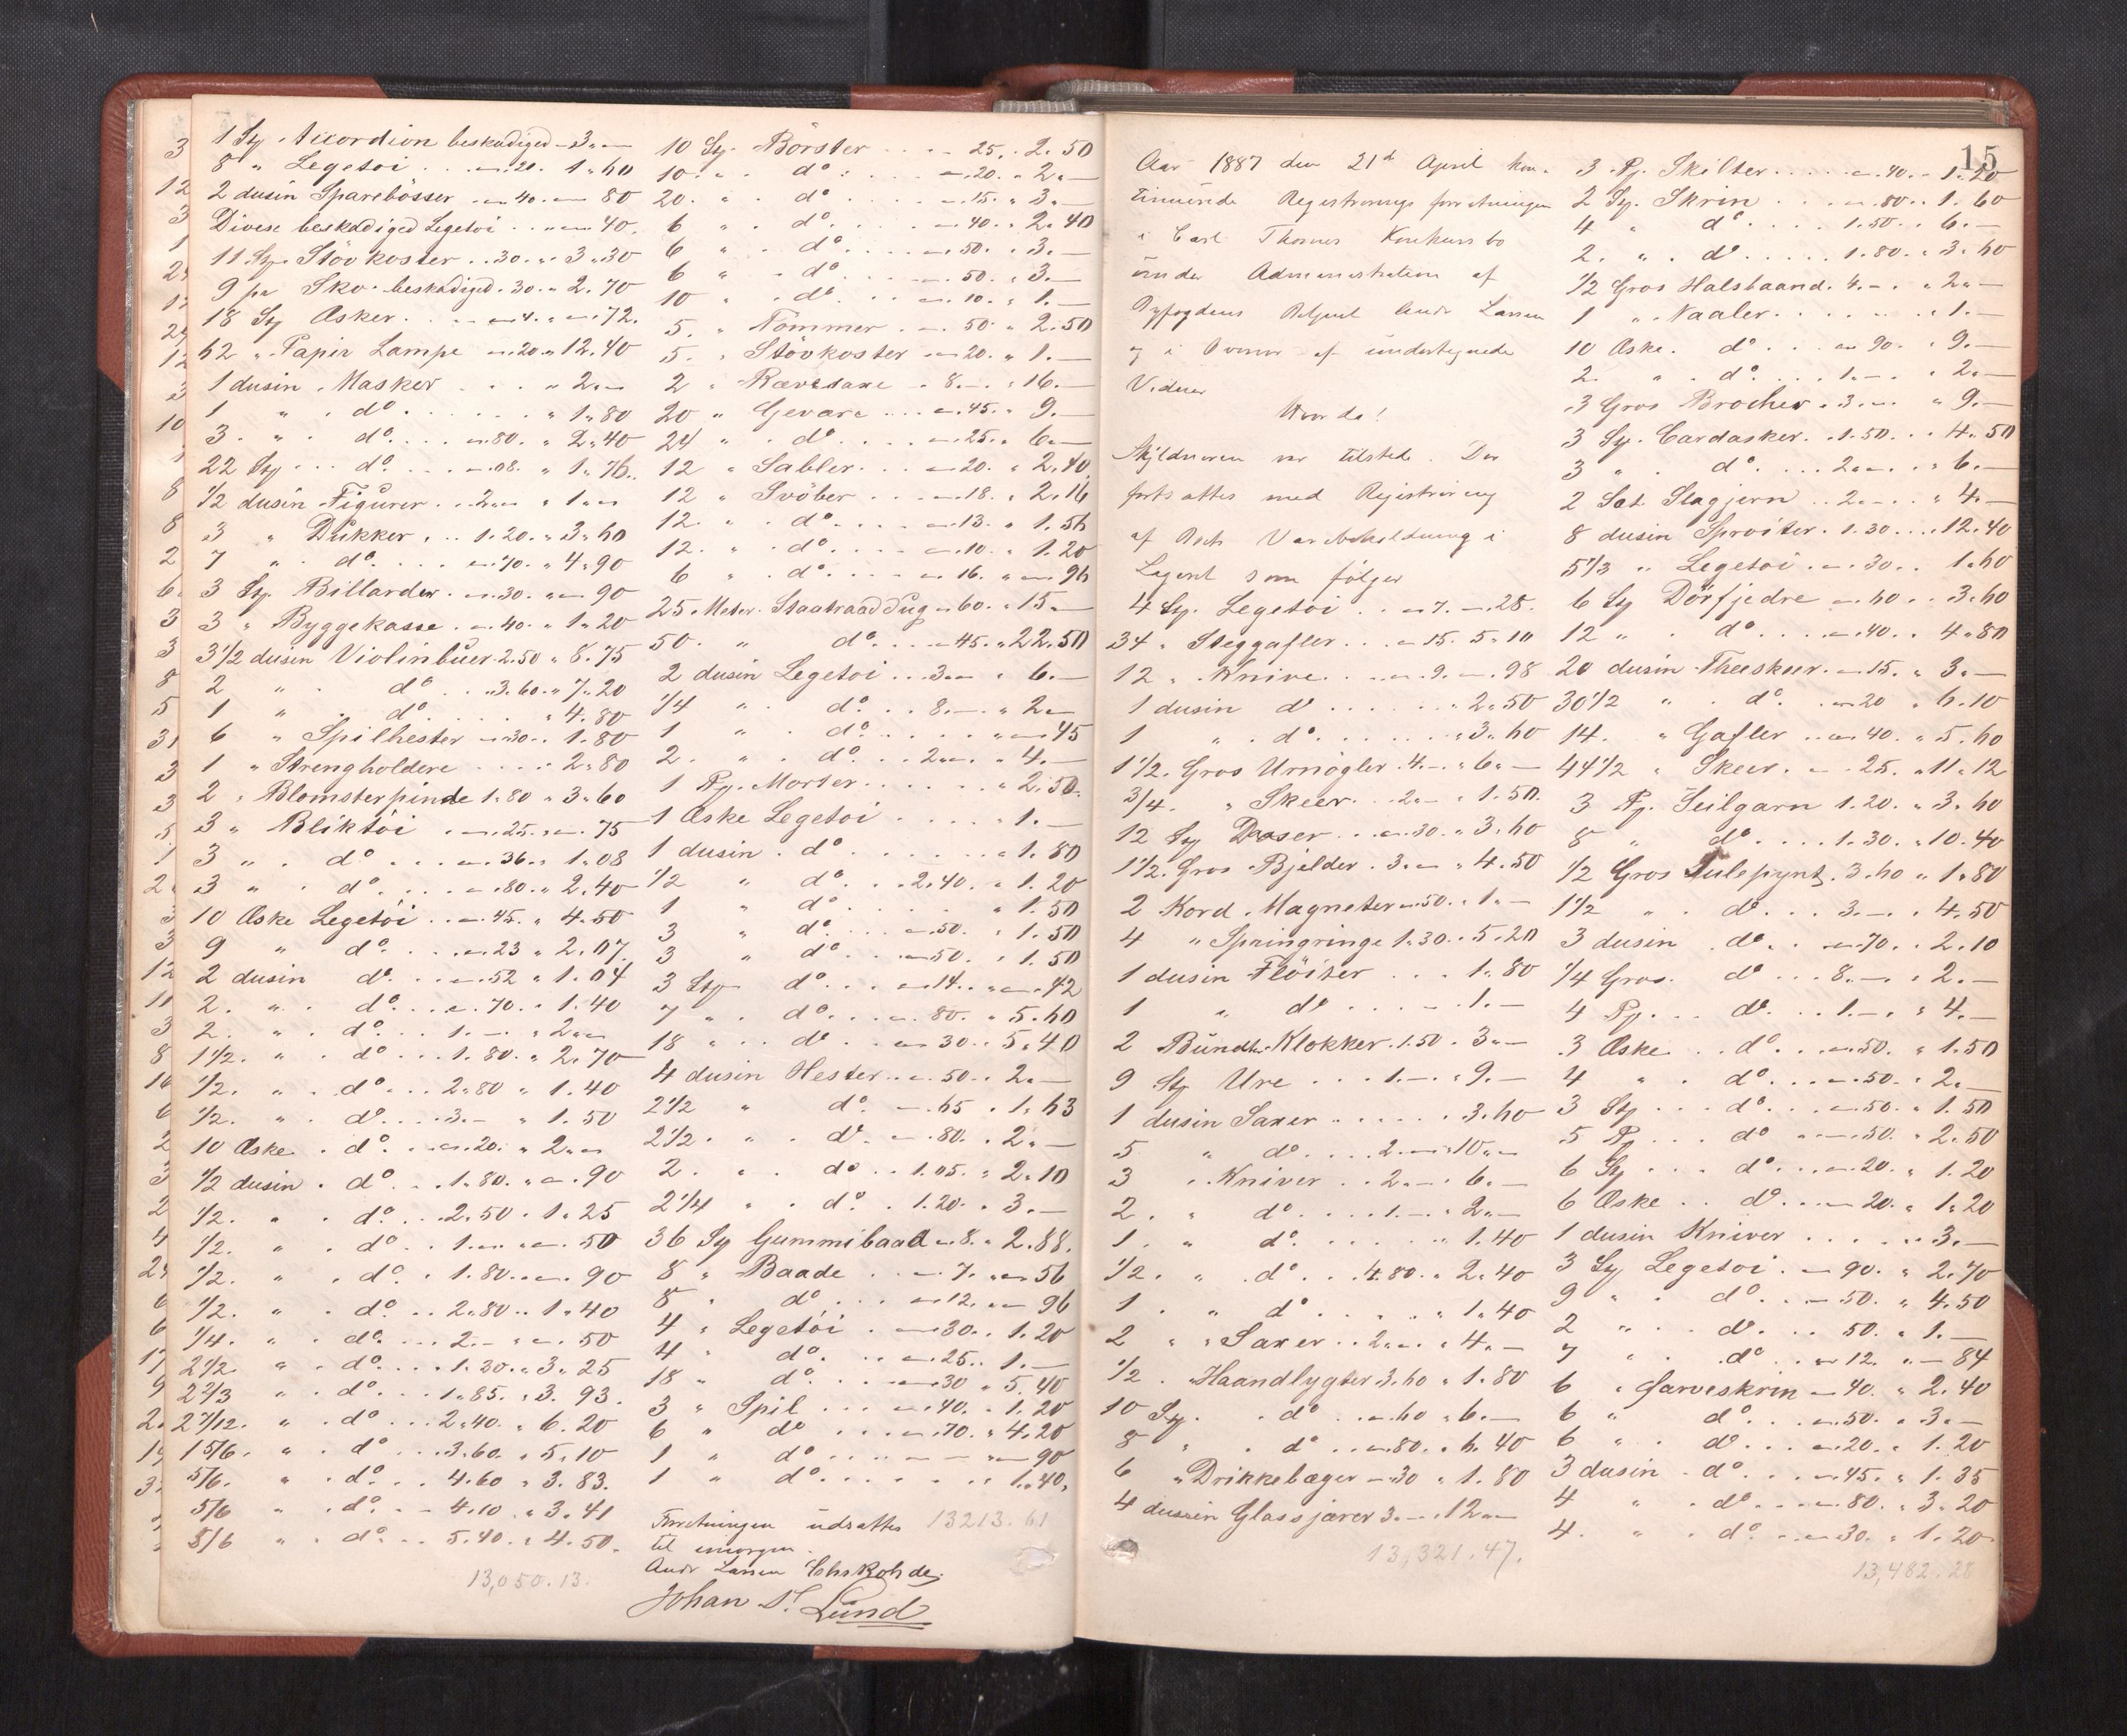 1 Sty Accordion beskadiged - 3 " —
8 " Legetöi . . . — 20. 1 " 60
2 dusin Sparebösser — 40 — 80
Divese beskadiged Legetöi . . " — 40.
11 Sty. Stövkoster . . 30 . " 3 " 30
9 pa Sko beskadiged . 30 . " 2. 70
18 Sty Æsker . . — 4 . " — 72.
62 " Papir Lampe — 20 . " 12. 40
1 dusin Masker . . . " 2 " —
1 " do . . . . " 1 " 80
3. " do . . — 80. " 2 " 40
22 Sty . . do . . — 08. " 1 " 76.
1/2 dusin Figurer . . 2 " — " 1 " —
3 " Dükker . . 1. 20. " 3 " 60
7 " do . . — 70. " 4 " 90
3 Sty. Billarder . — 30. " — 90
3 " Byggekasse . — 40. " 1 " 20
3 1/2 dusin Violinbuer 2.50 " 8. 75
2 " do . . 3. 60. " 7. 20
1 " do . . . " 4. 80
6 " Spilhester — 30 . . 1. 80
1 " Strengholdere . . . . 2 " 80
2 " Blomsterpinde 1 " 80 " 3 " 60
3 " Bliktöi . — 25. " — 75
3 " do . . . — 36. " 1 " 08
3 " do . . . — 80. " 2. 40
10 Æske Legetöi . . — 45. " 4. 50
9 " do . . — 23 " 2. 07.
2 dusin do . . — 52 " 1. 04
2. " do . . — 70. " 1. 40
2. " do . . 1. — " 2 " —
1 1/2. " do . . . 1. 80. " 2. 70
1/2. " do . . . 2 " 80 " 1. 40
1/2. " do . . . 3. — " 1. 50
10 Æske . do . . — 20. " 2 " —
1/2 dusin . do . . 1. 80. " — . 90
1/2. " do . . 2. 50 . 1 " 25
1/2. " do . . 1. — " — . 50
1/2. " do . 1. 80. " — 90
1/2. " do . . 2 " 80 . . 1 " 40
1/4. " do . . . 2. — " — . 50
2 1/2 " do . . . 1. 30. " 3 " 25
2 2/3 " do . . . 1 " 85. " 3. 93.
2 7/12. " do . . . 2 " 40. " 6. 20
1 5/6. " do . . . 3. 60. " 5 " 10
5/6. " do . . 4. 60 " 3. 83.
5/6 " do . . 4. 10 . " 3. 41
5/6 " do . . 5. 40. " 4. 50.
13,050. 13.
10 Sty. Börster . . . . 25. . 2. 50
10. " do . . . — 20. " 2 " —
20. " do . . . — 15. " 3. —
6 " do . . . — 40. " 2 " 40
6 " do . . . — 50. " 3. —
6 " do . . . — 50. " 3. —
10 " do . . — 10. " 1. —
5. " Tömmer . — 50. " 2. 50
5. " Stövkoster — 20. " 1. —
2 " Rævesaxe . 8. — " 16. —
20 " Gevære . . — 45. " 9. —
24 " do . . . — 25. " 6. —
12 " Sabler . . . — 20. " 2. 40
12 " Svöber . . — 18. " 2. 16
12. " do . . . — 13. " 1. 56
12. " do . . . — 10. " 1. 20
6 " do . . . — 16. " — 96
25 Meter. Staatraaddug — 60. " 15. —
50. " do . . — 45. " 22. 50
2 dusin Legetöi . . 3 — " 6. —
1/4 " do . . 8. — " 2 —
1 " do . . . . " — 45
2. " do . . 2 " — " 4. —
1 Pg. Morter . . . . . " 2. 50.
1 Æske Legetöi . . . . " 1. —
1 dusin . do . . . . . " 1. 80
1/2 " do . . 2. 40. " 1. 20
1 " do . . . . " 1. 50
3 " do . . — 50. " 1. 50
3 " do . . — 50. " 1. 50
3 Sty do . . . — 14. . " — 42
7 " do . . . — 80. " 5. 60
18 " do . . — 30 . . 5 " 40
4 dusin Hester . . — 50 . . 2. —
2 1/2 " do . — . 65 . 1. 63
2 1/2. " do . — . 80. . 2 " —
2. " do . . 1. 05. " 2 " 10
2 1/4 " do . 1. 20. " 3. —
36 Sty Gummibaad — 8. " 2. 88.
8 " Baade . . — 7. " — 56
8 " do . . . — 12. " — 96
4 " Legetöi . — 30 . . 1. 20
4 " do . . — 25. . 1. —
18 " do . . . — 30 " 5. 40
3 " Spil . . . — 40. " 1. 20
6 " do . . . — 70. " 4. 20
1 " do . . . — " — 90
1 " do . . . . . 1. 40.
Forretningen udsattes 13213. 61
til imorgen.
Andr Larsen Chs Rohde.
Johan S. Lund
15
Aar 1887 den 21de April kon-
tinuerede Registreringsforretningen
i Carl Thomes Konkursbo
under Administration af
Byfogdens Betjent Andr Larsen
og i Overvær af undertegnede
Vidner
Hvor da!
Skyldneren var tilstede. Der
fortsattes med Registrering
af Boets Varebeholdning i
Lageret som følger
4 Sty. Legetöi . . — 7. — . 28.
34 " Steggafler . . . — 15. 5 " 10
12 " Knive . . . — 9. — . 98
1 dusin do . . . . . " 2. 50
1 " do . . . . . " 3. 60
1 1/2. Gros Urnögler . 4. — " 6 " —
3/4. " Skeer . . 2 " — " 1. 50.
12 Sty Daaser . . — 30. " 3. 60
1 1/2. Gros Bjelder . 3. — " 4. 50
2 Kord . Magneter — 50. " 1 " —
4 " Springringe 1 " 30. . 5. 20
1 dusin Flöiter . . . 1 " 80
1 " do . . . . . 1. —
2 Bündt. Klokker . 1. 50 . 3 " —
9 Sty Ure . . . 1. — " 9. —
1 dusin Saxer . . . . . 3. 60
5 " do . . . 2. — " 10 " —
3 " Kniver . . 2 " — " 6. —
2. " do . . . . 1. — " 2 " —
1. " do . . . . . " 1. 40
1/2. " do . . . 4. 80. " 2 " 40
1. " do . . . . . " 1 " 40
2 " Saxer . . 2 " — " 4 " —
1/2. " Haandlygter 3. 60 " 1 " 80
10 Sty. do . . — 60 " 6. —
8 " do . . — 80. " 6. 40
6 " Drikkebæger — 30 " 1. 80
4 dussin Glassjærer 3. — " 12 " —
13,321. 47.
3 Pg. Skilter . . . . . — 40. " 1. 20
2 Sty. Skrin . . . — 80. . 1. 60
4 " do . . . . 1. 50. " 6. —
2. " do . . . . . 1. 80. " 3. 60
1/2 Gros Halsbaand. 4. — . " 2 " —
1 " Naaler . . . . . " 1. —
10 Æske. do . . . — 90. " 9. —
2. " do . . . . 1. — . " 2 " —
3 Gros Brocher . 3. — " 9. —
3 Sty. Cardasker. . 1. 50. . . 4. 50
3 " do . . . . 2 " — . " 6. —
2 Sæt Slagjern . . 2. — . " 4. —
8 dusin Sproiter . 1. 30 . . . 12. 40
5 1/3 " Legetöi . — . 30. . 1. 60
6 Sty Dörfjedre — . 60. . 3. 60
12 " do . . . — . 40. . 4 " 80
20 dusin Theeskeer . — 15. " 3. —
30 1/2 " do . — 20 " 6. 10
14. " Gafler . . — 40. " 5. 60
44 1/2 " Skeer. . — . 25. " 11 " 12
3 Pg. Seilgarn 1. 20. " 3. 60
8 " do . . . 1. 30. " 10. 40
1/2 Gros Julepynt. 3. 60 " 1 " 80
1 1/2 " do . . . 3. — . 4. 50
3 dusin do . . — . 70. . 2. 10
1/4 Gros. do . . . 8. — . " 2. —
4 Pg. . . do . . . 1. — . " 4. —
3 Æske . . do . . . — . 50. " 1. 50
4 " do . . . — . 50. " 2. —
3 Sty . . do . . . — . 50. " 1. 50
5 Pg . . . do — . 50. " 2. 50
6 Sty . . . do . . . — . 20. " 1. 20
6 Æske . . do . . — 20. " 1. 20
1 dusin Kniver . . . . . " 3. —
3 Sty Legetöi . — 90. " 2. 70
9 " do . . . — 50. " 4. 50
2 " do . . . 50. " 1. —
7 " do . . — 12. " — 84
6 " Farveskrin — 40. " 2. 40
6 " do . . — . 50. " 3. —
6 " do . . . — . 20. " 1. 20
3 dusin do . . . — 45. " 1. 35
4 " do . . . — . 80. " 3. 20
4. " do . . — . 30. " 1. 20
13,482. 28